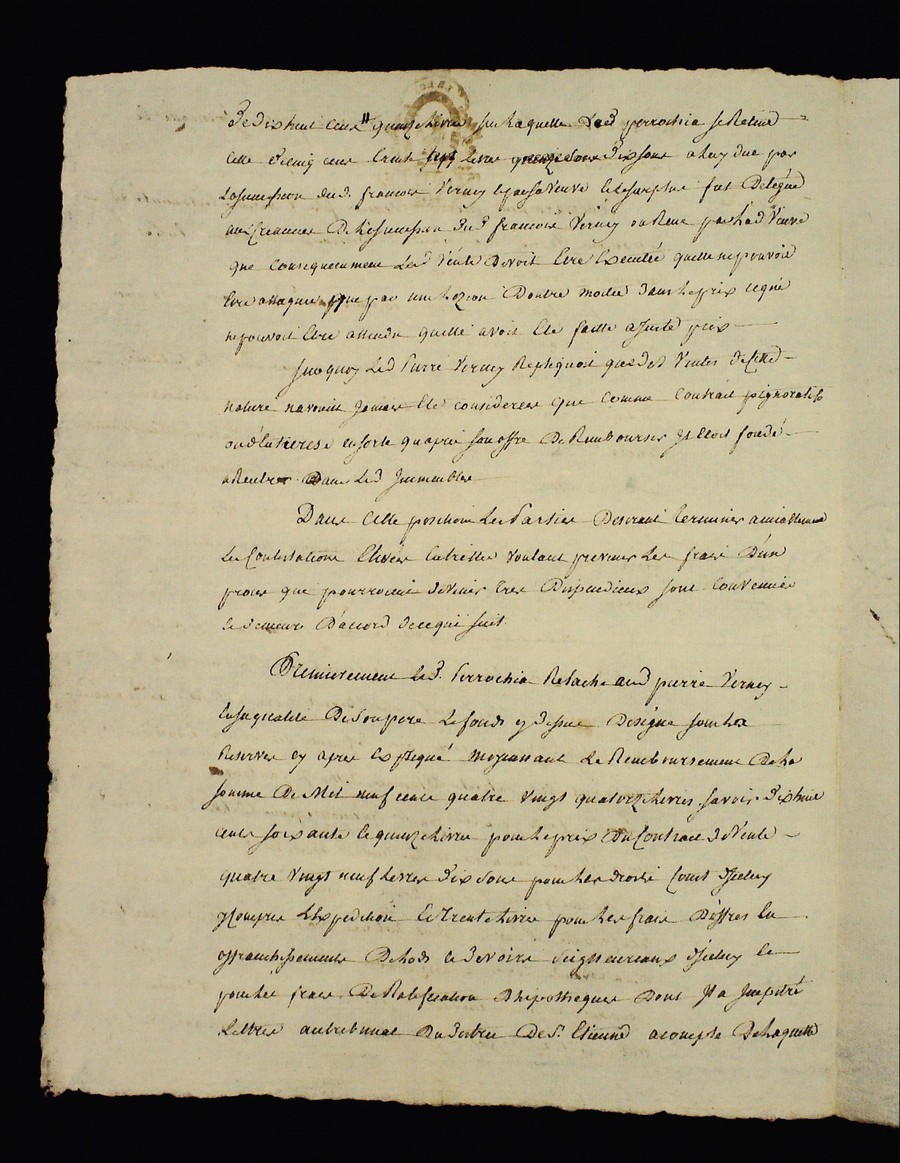 De dixhuit cens quinze livres sur laquelle led perrochia se Retint
celle De cinq cens trente sept livres Dix sous a luy due par
la succession dud. francois Verney et par sa veuve et le surplus fut Delegué
aux Creanciers De la succession dud francois Verney ou Remis par lad Veuve
que Consequemment lad Vente Devoit Etre Executée quelle ne pouvoit
Etre attaquée que par une Lezion Doutre moitié Dans le prix ce qui
ne pouvoit Etre attendu quelle avoit Eté faitte a juste prix
Surquoy Led Pierre Verney Repliquoit que Des Ventes de cette
nature navoient jamais Eté considerées que Comme Contrait pignoratifs
ensorte quapres son offre De Rembourser Il Etoit fondé
a Rentrer Dans Les Immeubles
Dans Cette position Les Parties Desirant terminer amiablement
Les Contestations Elevées Entrelles voulant prevenir Les frais Dun
proces qui pourroient devenir tres Dispendieux sont Convenues
et Demeurés Daccord de ce qui suit.
Premierement Led. Perrochia Relache aud pierre Verney
En sa qualité De Son pere Le fonds cy Dessus Designé sous les
Reserves cy apres Expliqué moyennant Le Remboursement De la
somme De Mil neuf cens quatre Vingt quatorze livres, savoir Dixhuit
cens soixante et quinze livres pour le prix Du Contrat de Vente
quatre Vingt neuf livres Dix sous pour les droits Court Diceluy
y Compris L'Expedition Et Trente livres pour les frais
affranchissements De Lods et devoirs Seigneuriaux Diceluy et
pour les frais De Ratification Dhipotheques Dont Il a Impetré
Lettres au tribunal Du District De St. Etienne a compte De laquelle